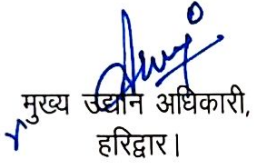 मुख्य उद्यान अधिकारी,
हरिद्वार।